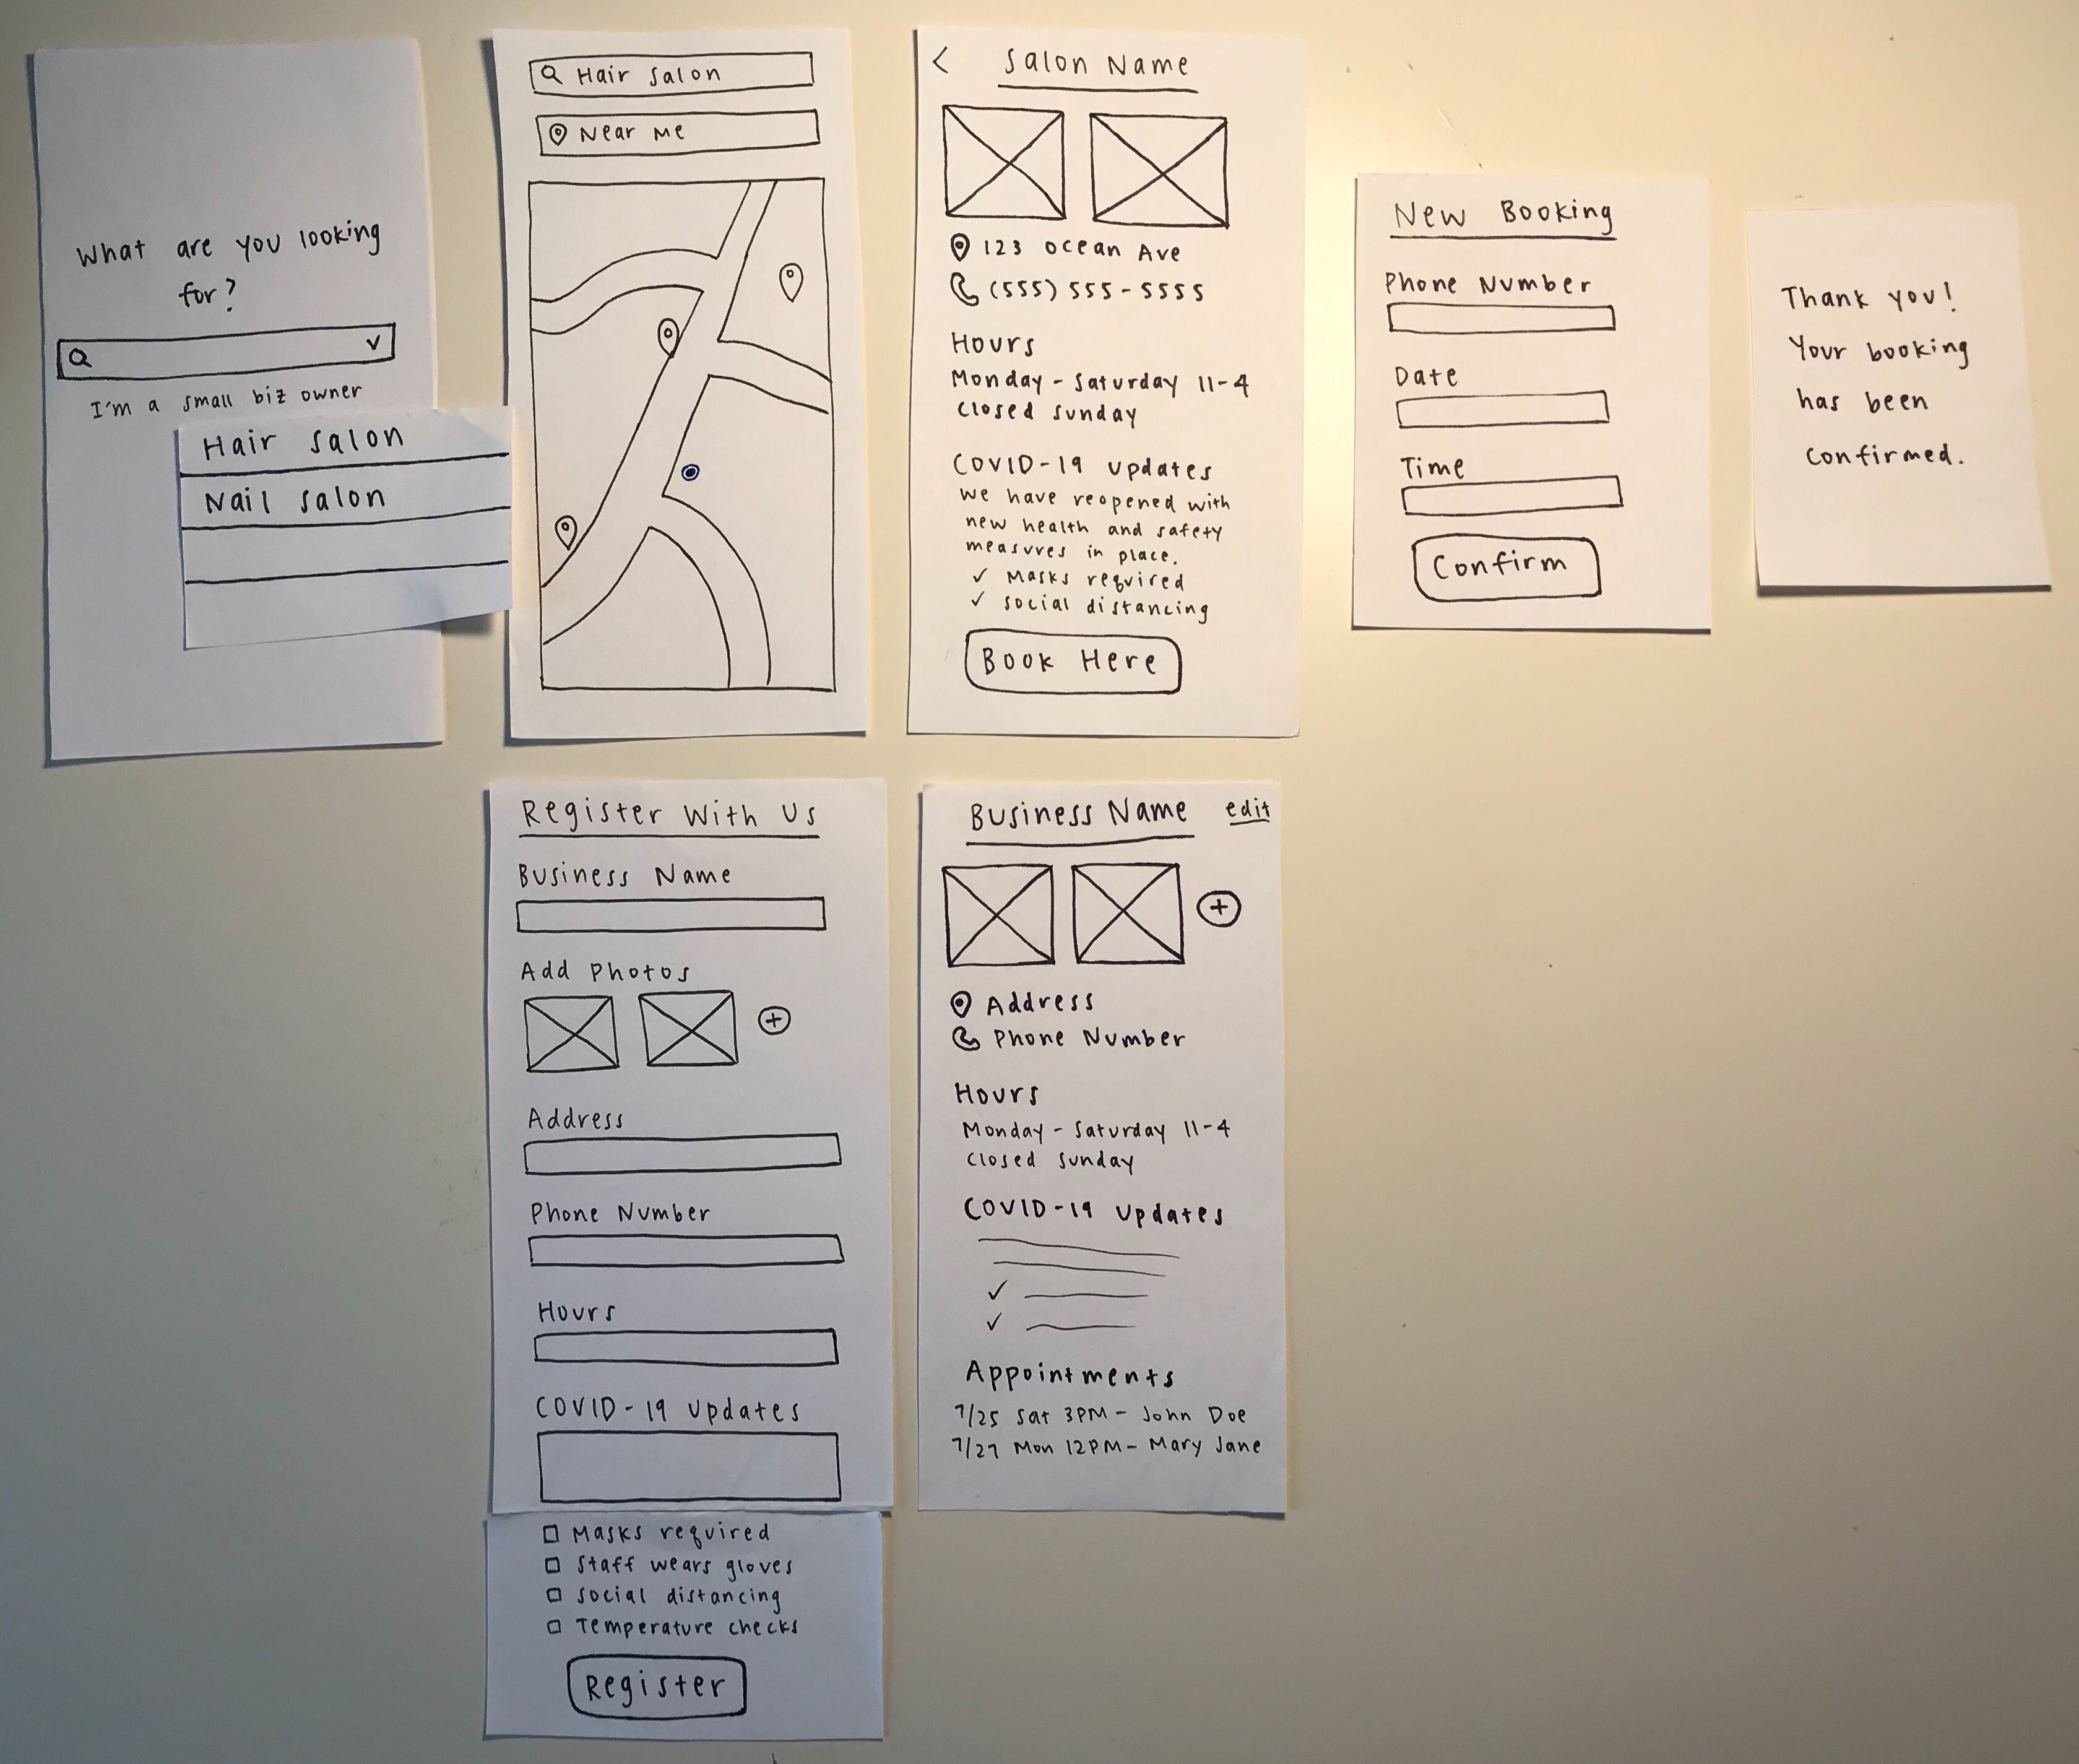 What are you looking
for?
I'm a small biz owner
Hair salon
Nail salon
Hair salon
Near Me
Salon Name
123 Ocean Ave
(555) 555-5555
Hours
Monday - Saturday 11-4
Closed Sunday
COVID-19 Updates
We have reopened with
new health and safety
measures in place.
✓ Masks required
✓ Social distancing
Book Here
New Booking
Phone Number
Date
Time
Confirm
Thank you!
Your booking
has been
confirmed.
Register With Us
Business Name
Add Photos
Address
Phone Number
Hours
COVID-19 Updates
Masks required
Staff wears gloves
Social distancing
Temperature checks
Register
Business Name edit
Address
Phone Number
Hours
Monday - Saturday 11-4
Closed Sunday
COVID-19 Updates
Appointments
7/25 Sat 3PM - John Doe
7/27 Mon 12PM - Mary Jane